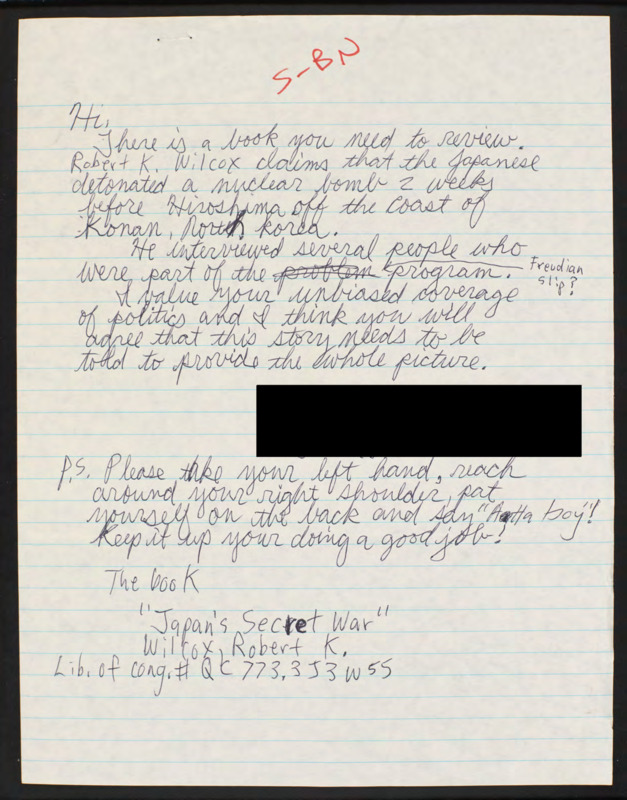 S-BN
Hi,
There is a book you need to review.
Robert K. Wilcox claims that the Japanese
detonated a nuclear bomb 2 weeks
before Hiroshima off the coast of
Konan, North Korea.
He interviewed several people who
were part of the problem program. Freudian slip?
I value your unbiased coverage
of politics and I think you will
agree that this story needs to be
told to provide the whole picture.
P.S. Please take your left hand, reach
around your right shoulder, pat
yourself on the back and say "Atta boy"!
Keep it up your doing a good job!
The book
"Japan's Secret War"
Wilcox, Robert K.
Lib. of Cong. # QC 773.3J3 W55